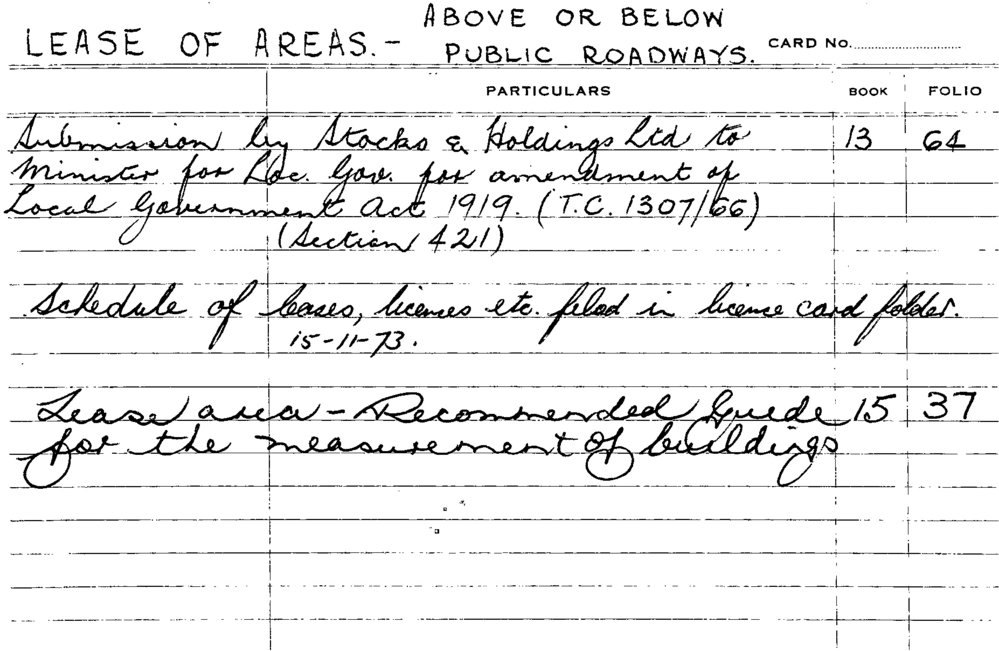 ABOVE OR BELOW
LEASE OF AREAS.- PUBLIC ROADWAYS. CARD No.
PARTICULARS BOOK FOLIO
Submission by Stocks & Holdings Ltd to 13 64
Minister for Loc. Gov. for amendment of
Local Government Act 1919. (T.C. 1307/66)
(Section 421)
Schedule of leases, licenses etc. filed in licence card folder.
15-11-73.
Lease area - Recommended Guide 15 37
for the measurement of buildings